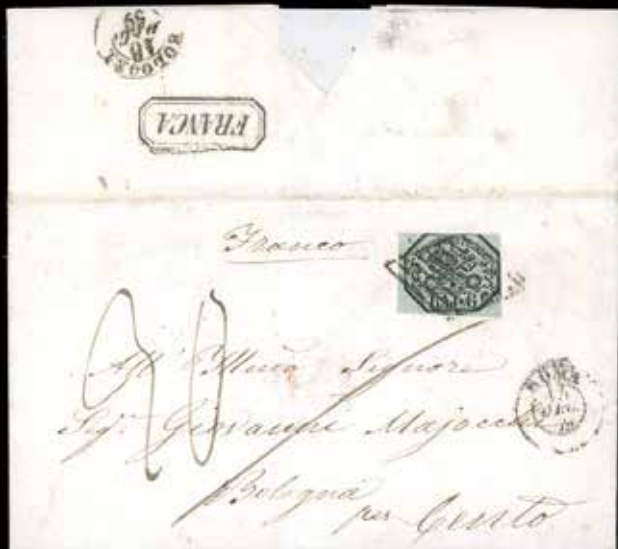 BOLOGNA
18
59
FRANCA
Franco
BAJ. 6
20
All' Illmo Signore
Sigr. Giovanni Majocchi
Bologna
per Cento
ROMA